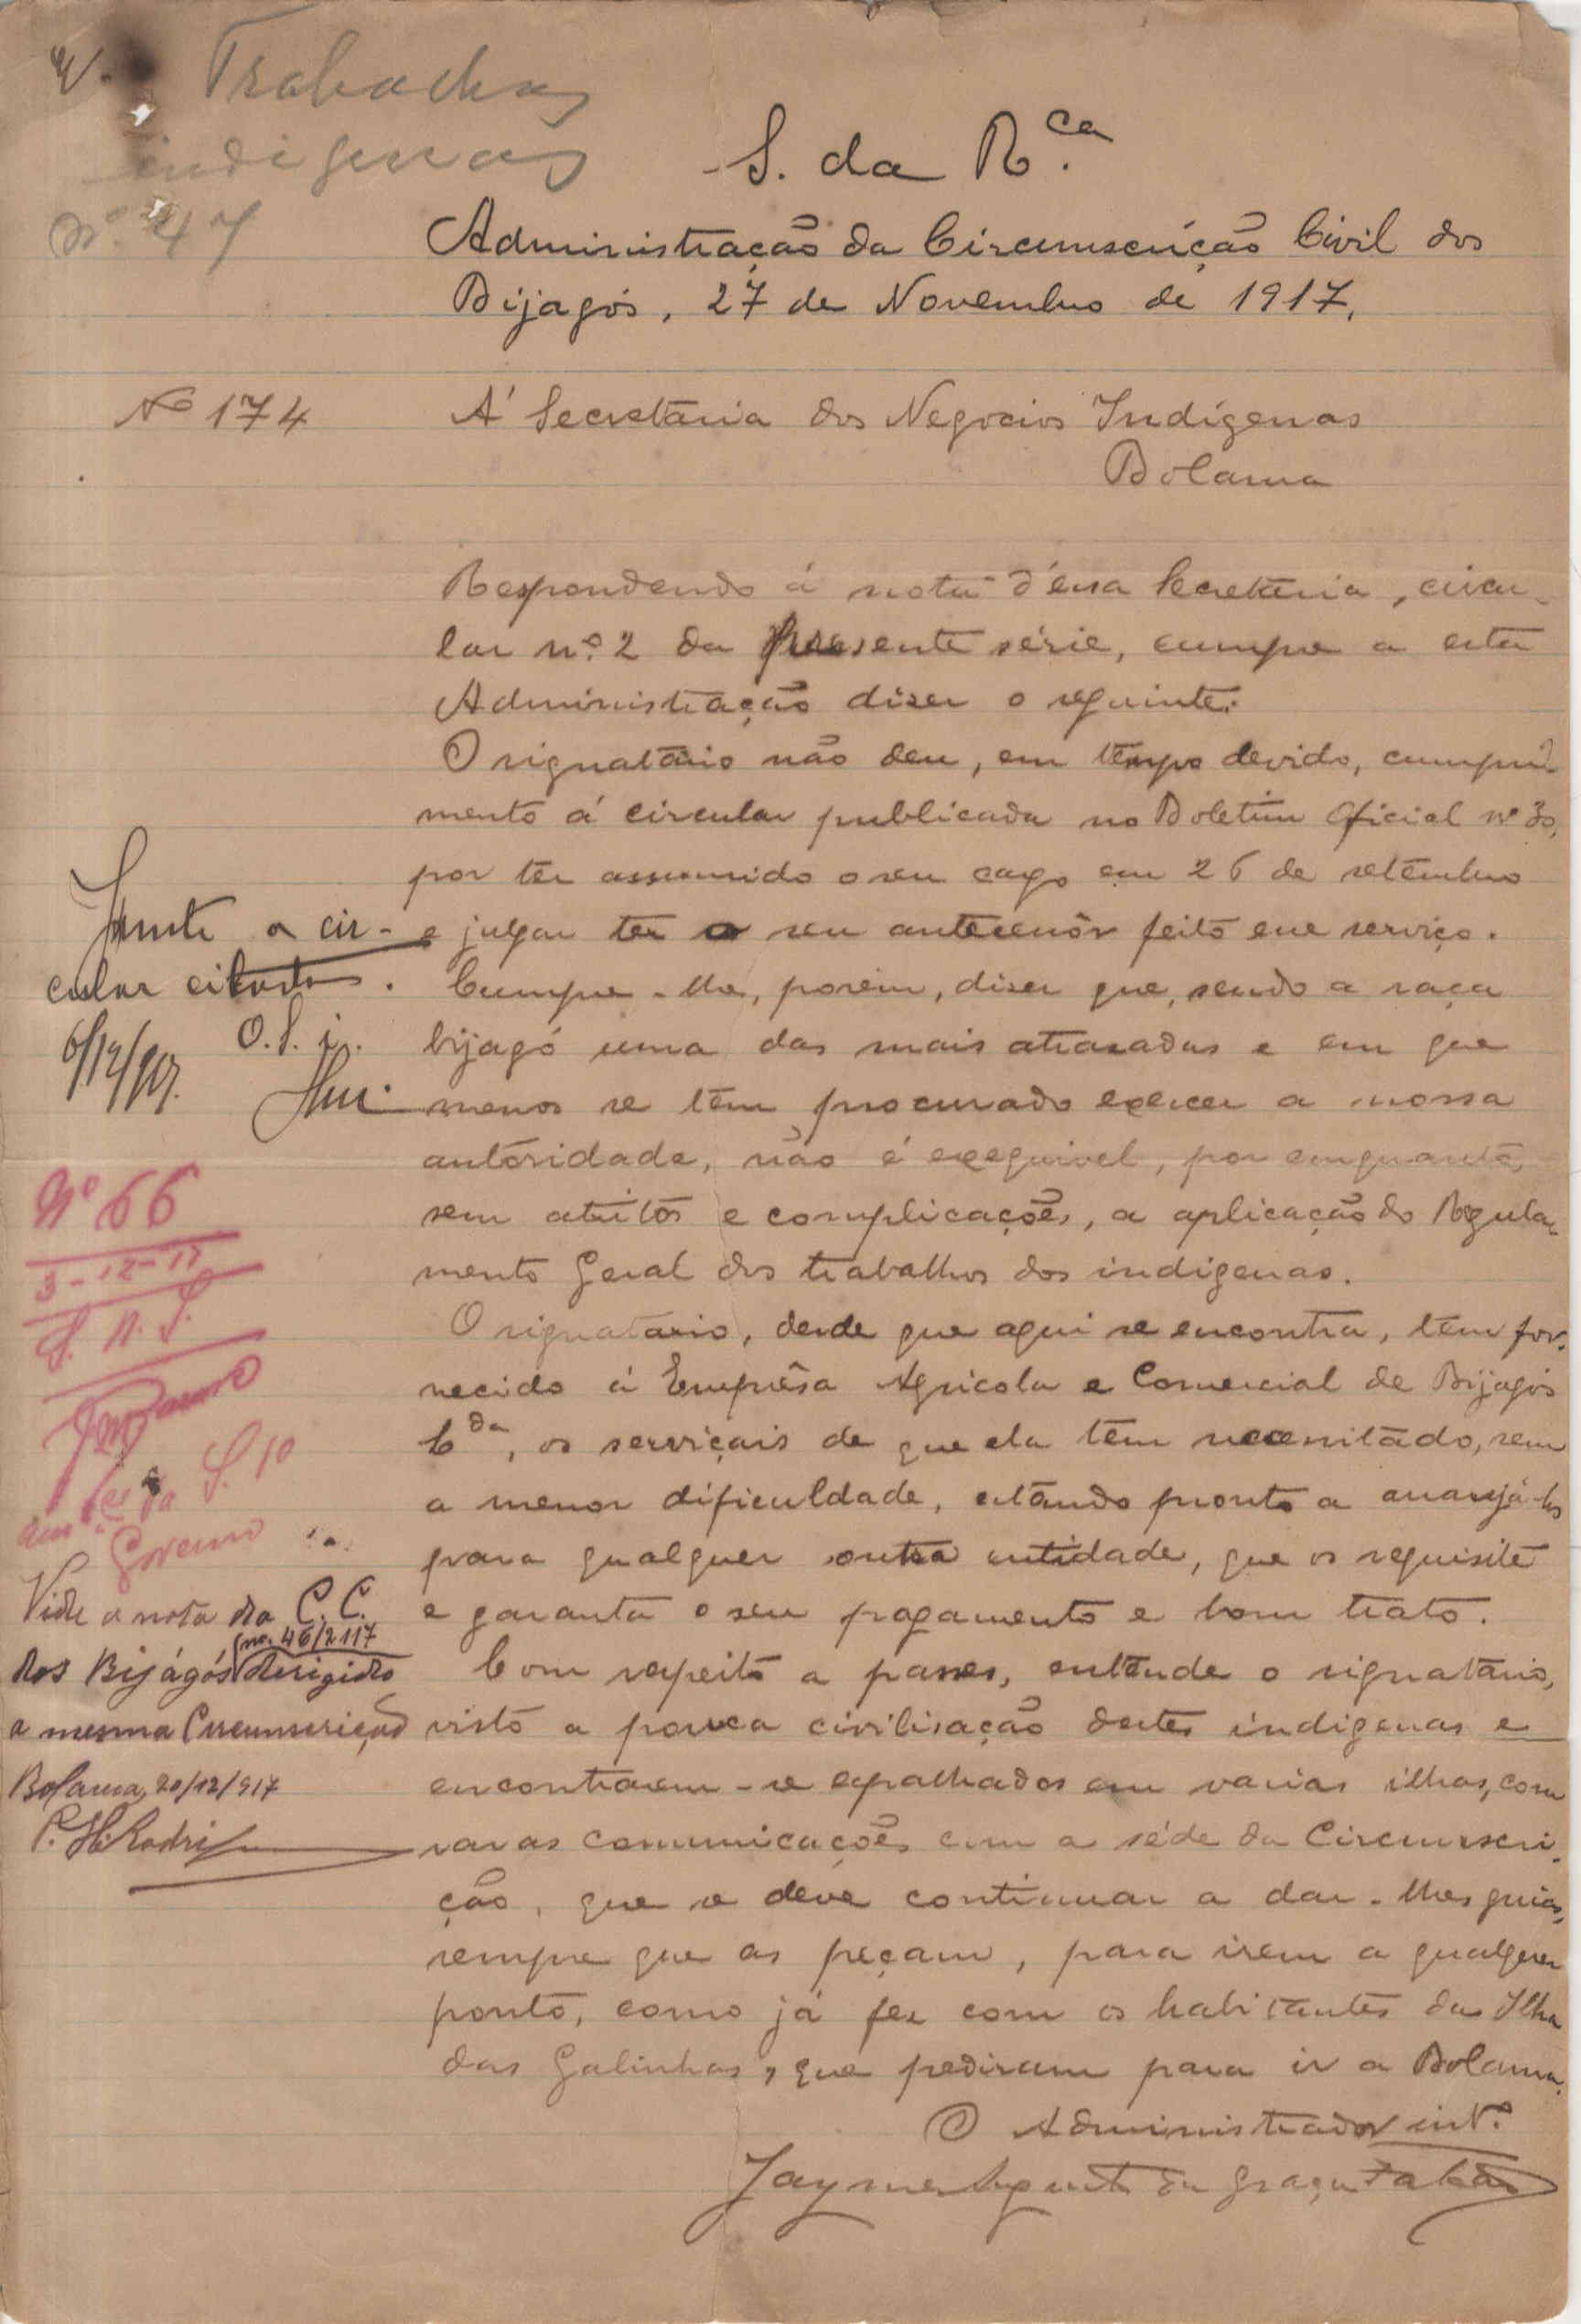 V. Trabalhos
indigenas
Nº 47
S. da R.ca
Administração da Circumscrição Civil dos
Bijagós, 27 de Novembro de 1917.
Nº 174
A' Secretaria dos Negocios Indígenas
Bolama
Respondendo á nota d'essa Secretaria, circu-
lar nº 2 da presente série, cumpre a esta
Administração dizer o seguinte:
O signatário não deu, em tempo devido, cumpri-
mento á circular publicada no Boletim Oficial nº 30,
por ter assumido o seu cargo em 26 de setembro
e julgar ter o seu antecessôr feito esse serviço.
Cumpre-lhe, porém, dizer que, sendo a raça
bijagó uma das mais atrazadas e em que
menos se têm procurado exercer a nossa
autóridade, não é exequivel, por emquanto,
sem atritos e complicações, a aplicação do Regula-
mento Geral dos trabalhos dos indigenas.
O signatario, desde que aqui se encontra, têm for-
necido á Emprêsa Agricola e Comercial de Bijagós
L.da, os serviçais de que ela têm necessitado, sem
a menor dificuldade, estando pronto a arranjá-los
para qualquer outra entidade, que os requisite
e garanta o seu pagamento e bom trato.
Com respeito a passes, entende o signatário,
visto a pouca civilisação destes indigenas e
encontrarem-se espalhados em varias ilhas, com
raras comunicações com a séde da Circumscri-
ção, que se deve continuar a dar-lhes guias,
sempre que as peçam, para irem a qualquer
ponto, como já fez com os habitantes da Ilha
das Galinhas, que pediram para ir a Bolama.
O Administrador int.º
Jayme Augusto da Graça Falcão
Junte a cir-
cular citada.
6/12/917. O. S. i.
Nº 66
3-12-17
S. N. I.
Governo
Vide a nota da C. C.
dos Bijágós (nº. 46/2117 dirigida
a mesma Circumscrição
Bolama, 20/12/917